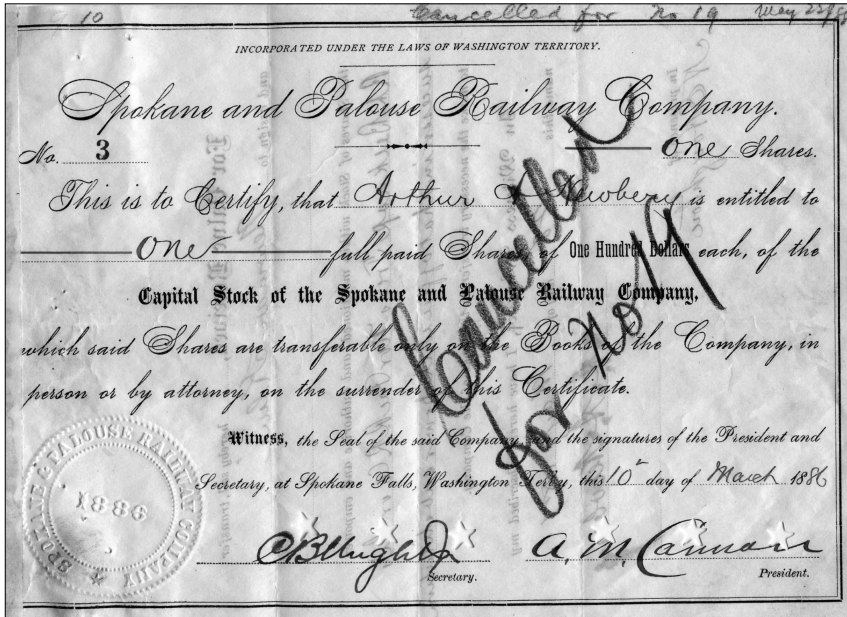 10 Cancelled for No 19 May 22/88
INCORPORATED UNDER THE LAWS OF WASHINGTON TERRITORY.
Spokane and Palouse Railway Company.
No. 3 One Shares.
This is to Certify, that Arthur Newbery is entitled to
One full paid Shares, of One Hundred Dollars each, of the
Capital Stock of the Spokane and Palouse Railway Company,
which said Shares are transferable only on the Books of the Company, in
person or by attorney, on the surrender of this Certificate.
Cancelled
for No 19
Witness, the Seal of the said Company, and the signatures of the President and
Secretary, at Spokane Falls, Washington Terr'y, this 10" day of March 1886
A. M. Cannon
Secretary. President.
SPOKANE & PALOUSE RAILWAY COMPANY
1886